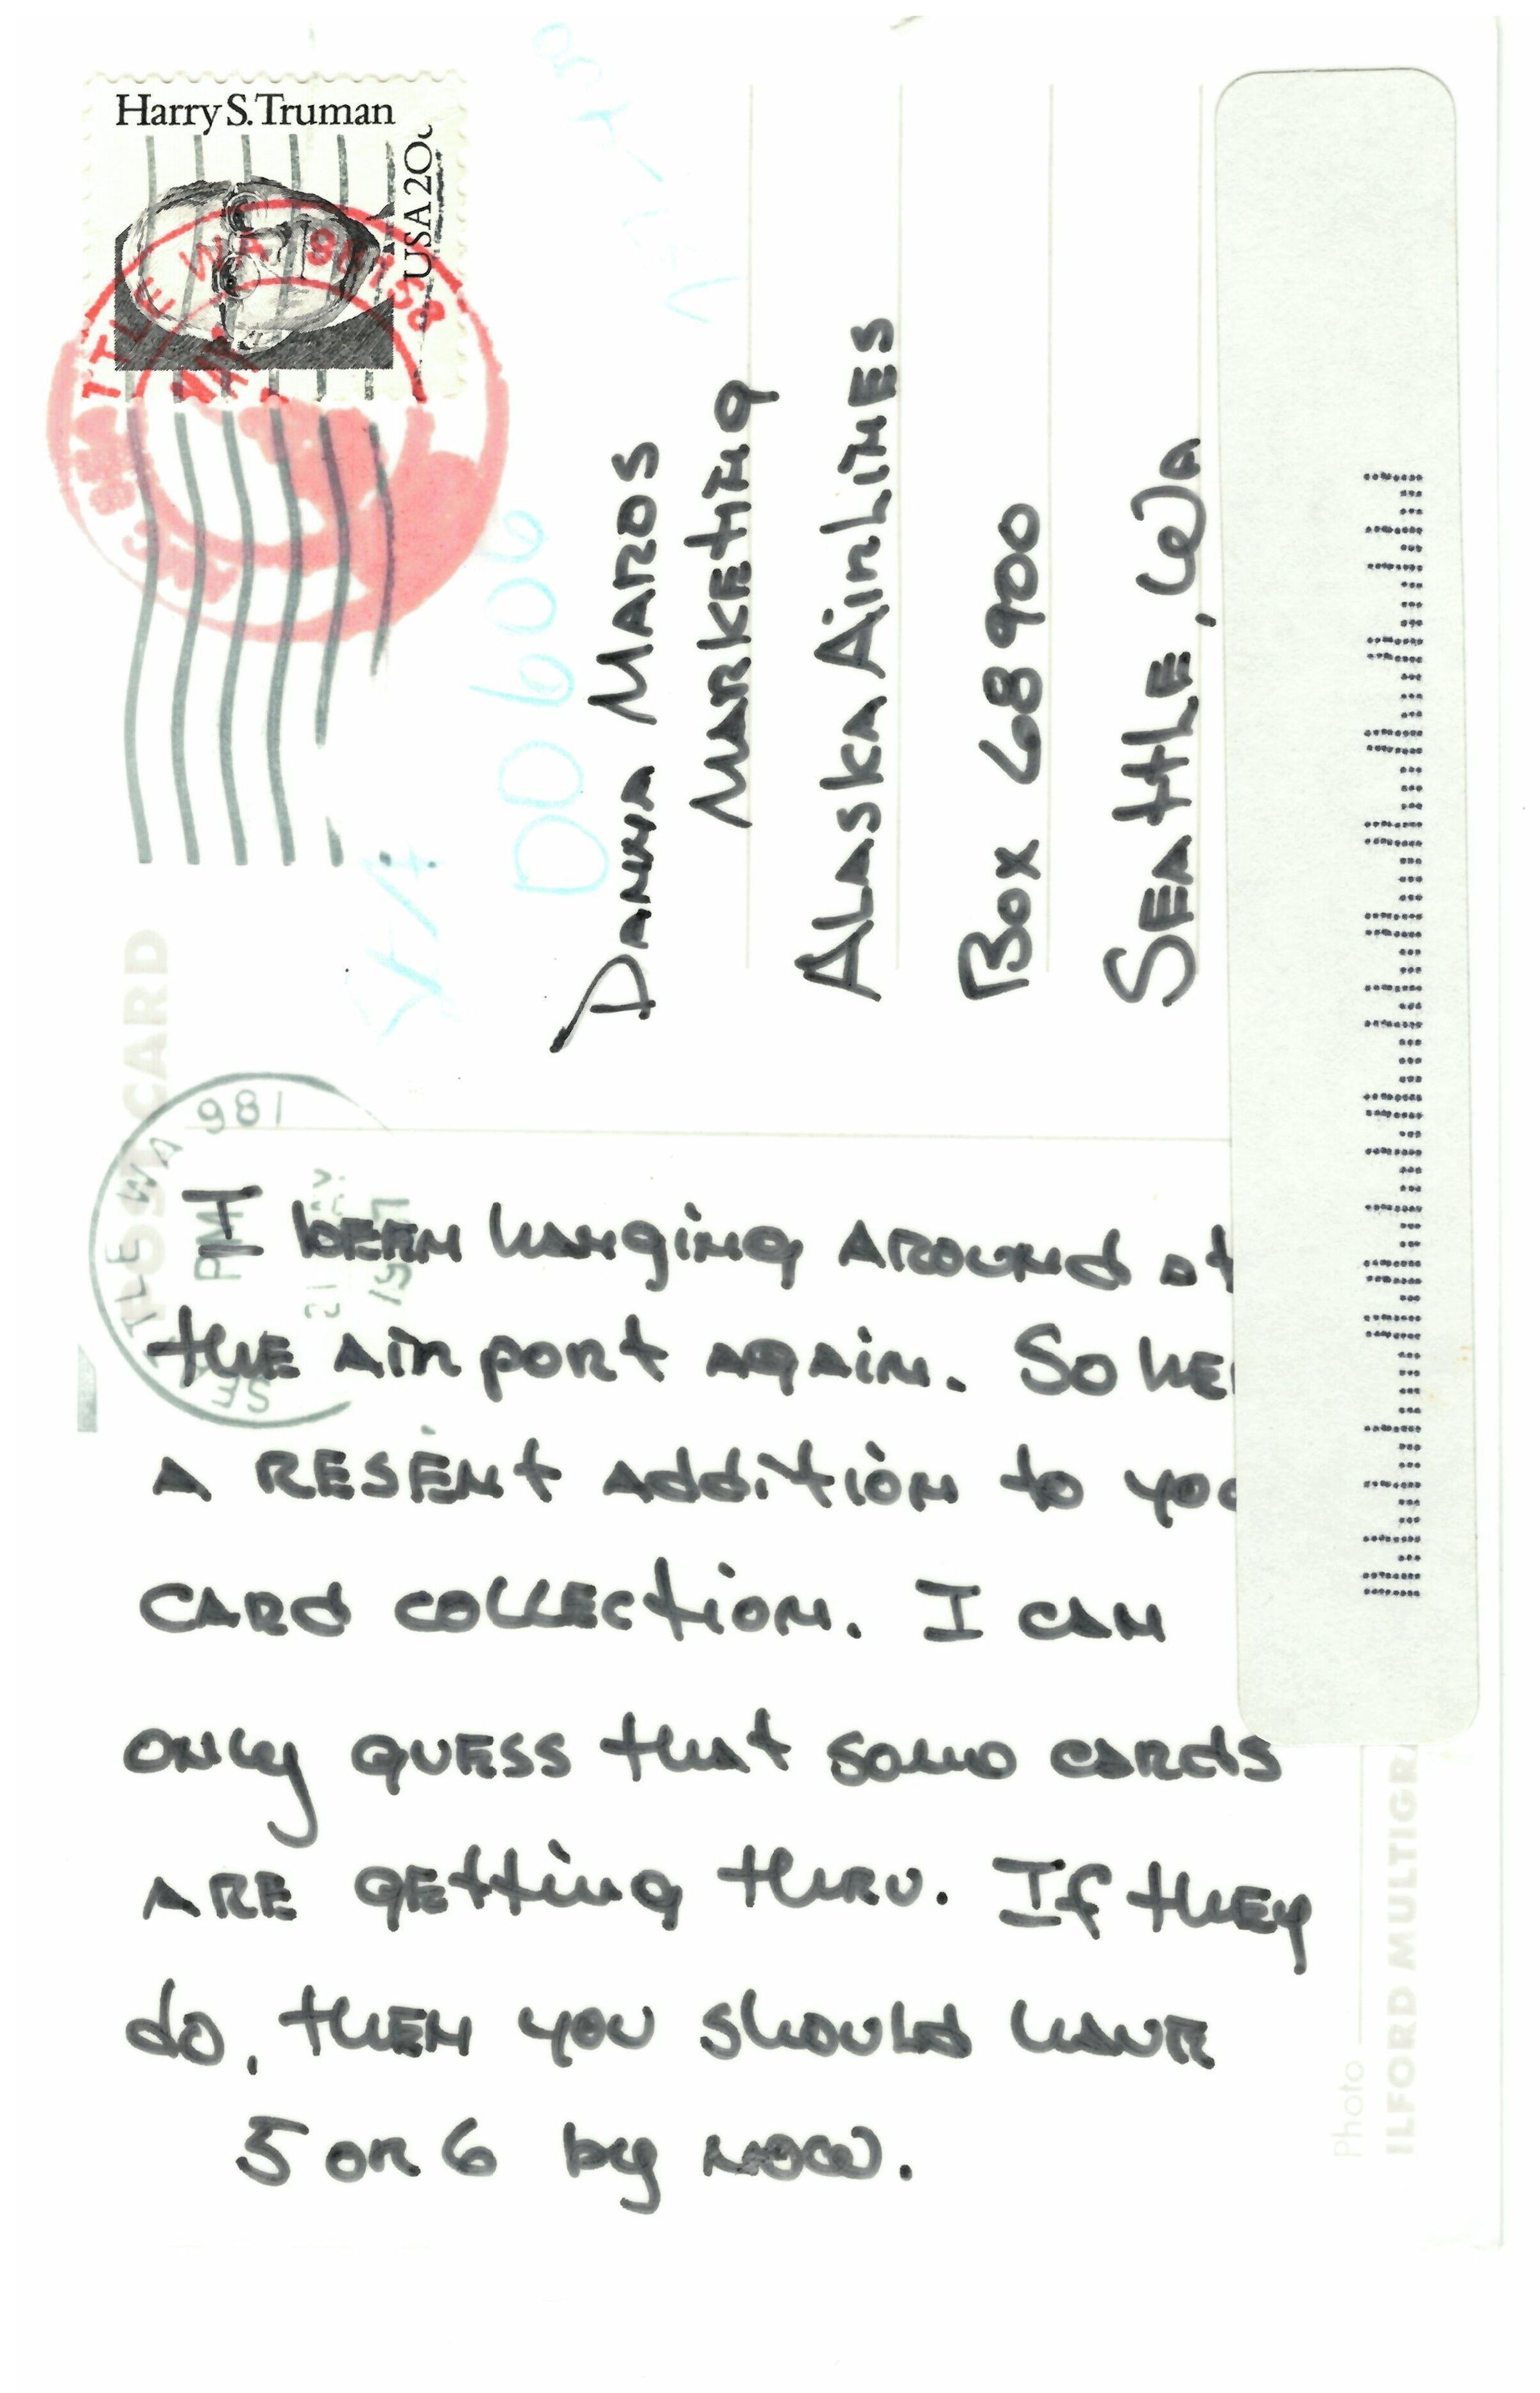 Harry S. Truman
USA 20c
SEATTLE WA 98158
POST CARD
SEATTLE WA 981
PM
21
DANNA MAROS
MARKETING
ALASKA AIRLINES
BOX 68900
SEATTLE, WA
I bEEN hANgiNg AROUNd At
thE AiRpORt AgAiN. SO hE
A RESENt AdditiON tO yOU
CARd COllECtiON. I CAN
ONly gUESS thAt SOME CARdS
ARE gEttiNg thRU. If thEy
dO, thEN yOU ShOUld hAVE
5 OR 6 by NOW.
Photo
ILFORD MULTIGRA